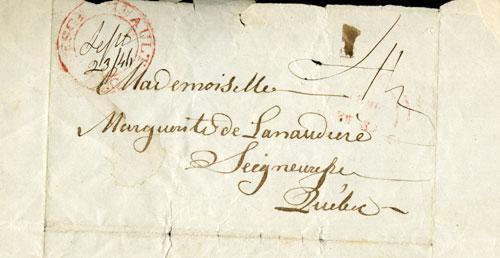 Sept
23/46
Mademoiselle
Marguerite de Lanaudiere
Seigneuresse
Québec